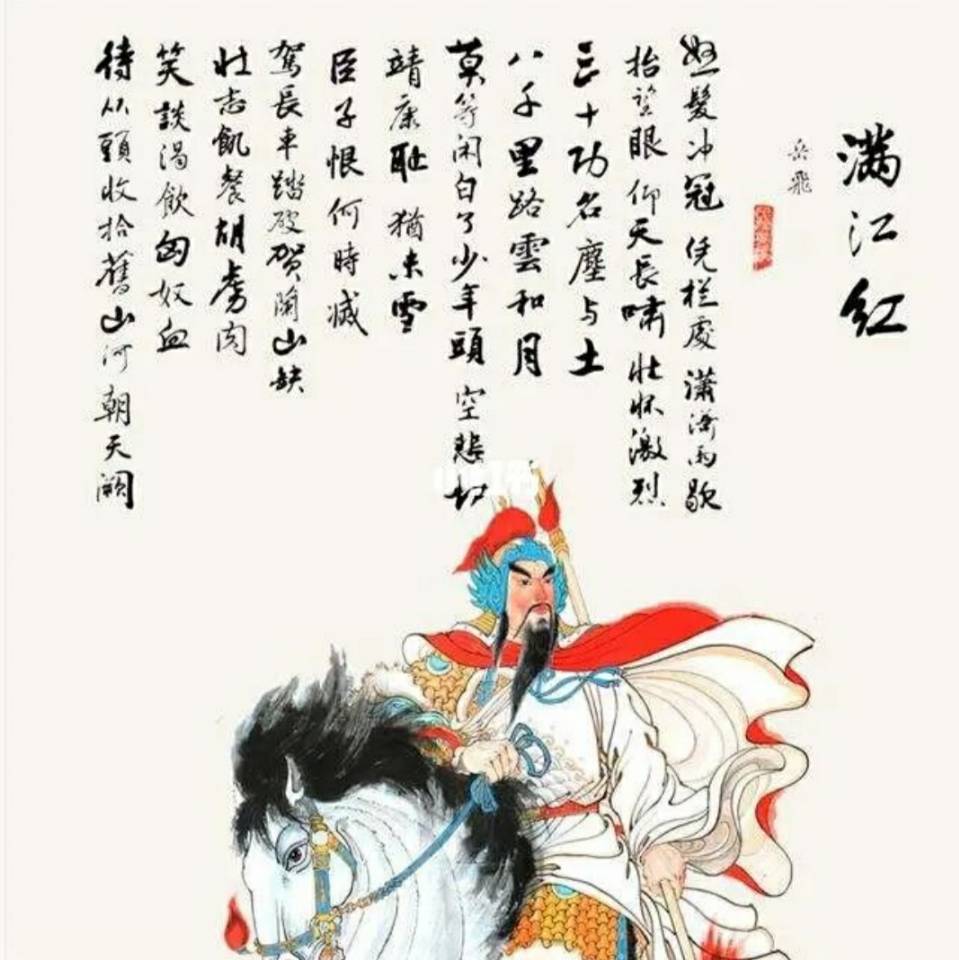 满江红
岳飛
怒髮冲冠 凭栏處 潇潇雨歇
抬望眼 仰天長啸 壮怀激烈
三十功名塵与土
八千里路雲和月
莫等闲白了少年头 空悲切
靖康耻 猶未雪
臣子恨何時滅
駕長車踏破贺蘭山缺
壮志飢餐胡虏肉
笑談渴飲匈奴血
待从頭收拾舊山河朝天阙
小红书